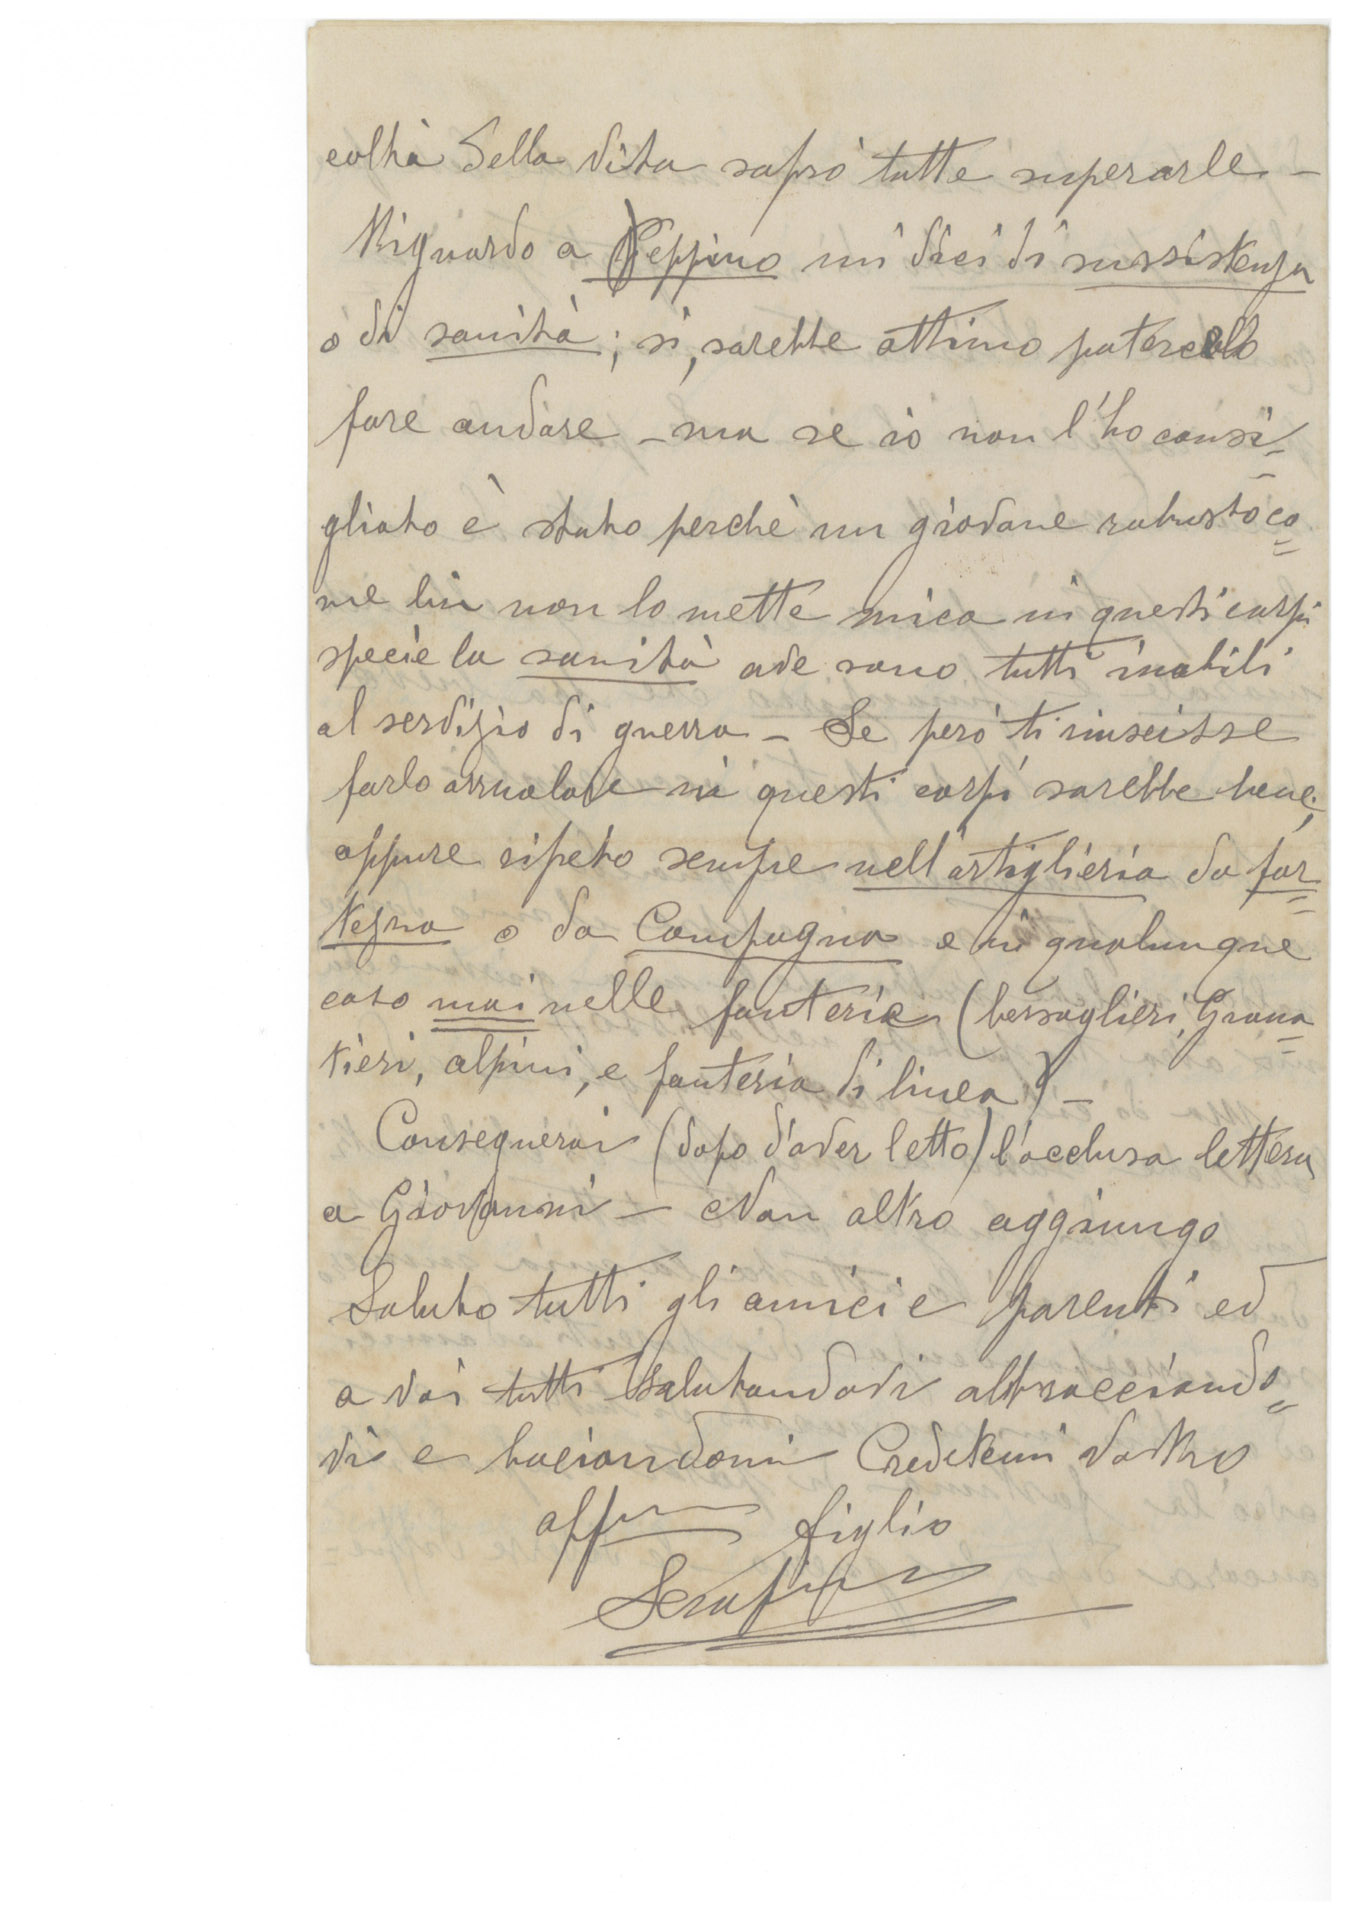 coltà della vita saprò tutte superarle –
Riguardo a Peppino mi dici di sussistenza
o di sanità; sì, sarebbe ottimo potercelo
fare andare – ma se io non l'ho consi=
gliato è stato perchè un giovane robusto co=
me lui non lo mette mica in questi corpi
specie la sanità ove sono tutti inabili
al servizio di guerra – Se però ti riuscisse
farlo arruolare in questi corpi sarebbe bene;
oppure ripeto sempre nell'artiglieria da for=
tezza o da Campagna e in qualunque
caso mai nelle fanterie (bersaglieri, Grana=
tieri, alpini, e fanteria di linea) –
Consegnerai (dopo d'aver letto) l'acclusa lettera
a Giovanni – Non altro aggiungo
Saluto tutti gli amici e parenti ed
a voi tutti salutandovi abbracciando=
vi e baciandomi Credetemi vostro
aff figlio
Serafino